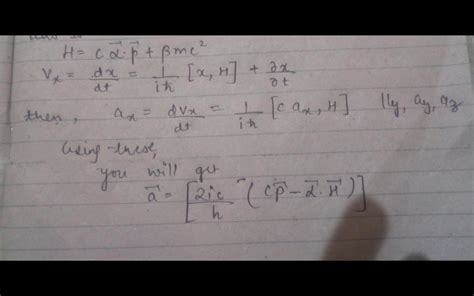 H = c α⃗·p⃗ + βmc²
Vₓ = dx/dt = 1/iħ [x, H] + ∂x/∂t
then, aₓ = dVₓ/dt = 1/iħ [c aₓ, H] ||y, ay, az
Using these,
you will get
a⃗ = [2ic/ħ (cp⃗ - α⃗·H⃗)]